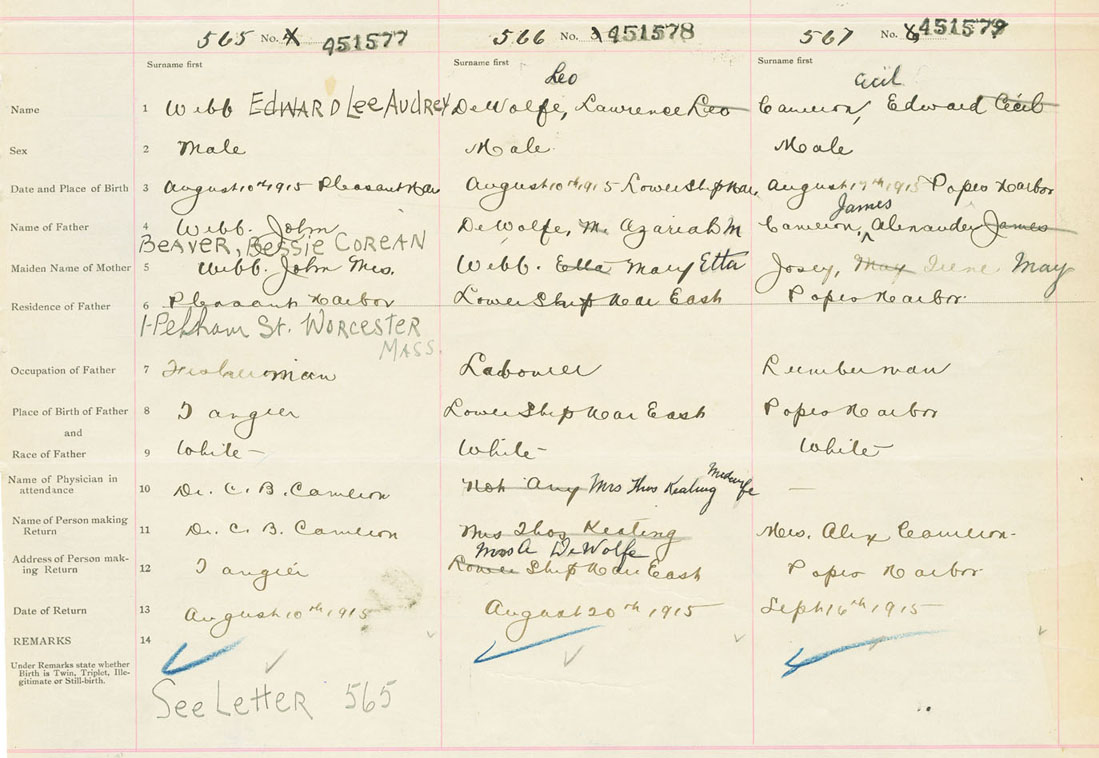 565 No. 451577 566 No. 451578 567 No. 451579
Surname first Surname first Surname first
Leo Cecil
Name 1 Webb EDWARD Lee AUDREY DeWolfe, Lawrence Leo Cameron, Edward Cecil
Sex 2 Male Male Male
Date and Place of Birth 3 August 10th 1915 Pleasant Har August 10th 1915 Lower Ship Har. August 17th 1915 Popes Harbor
James
Name of Father 4 Webb. John DeWolfe, M. Azariah M Cameron, Alexander James
BEAVER, BESSIE COREAN
Maiden Name of Mother 5 Webb. John Mrs. Webb. Etta Mary Etta Josey, May Irene May
Residence of Father 6 Pleasant Harbor Lower Ship Har East Popes Harbor.
1-Pelham St. WORCESTER
MASS.
Occupation of Father 7 Fisherman Labourer Lumberman
Place of Birth of Father 8 Tangier Lower Ship Har East Popes Harbor
and
Race of Father 9 White White White
Name of Physician in
attendance 10 Dr. C. B. Cameron Not Any Mrs Thos Keating Midwife —
Name of Person making
Return 11 Dr. C. B. Cameron Mrs Thos Keating Mrs. Alex Cameron.
Mrs A DeWolfe
Address of Person mak-
ing Return 12 Tangier Lower Ship Har East Popes Harbor
Date of Return 13 August 10th 1915 August 20th 1915 Sept 16th 1915
REMARKS 14
Under Remarks state whether
Birth is Twin, Triplet, Ille-
gitimate or Still-birth.
See Letter 565